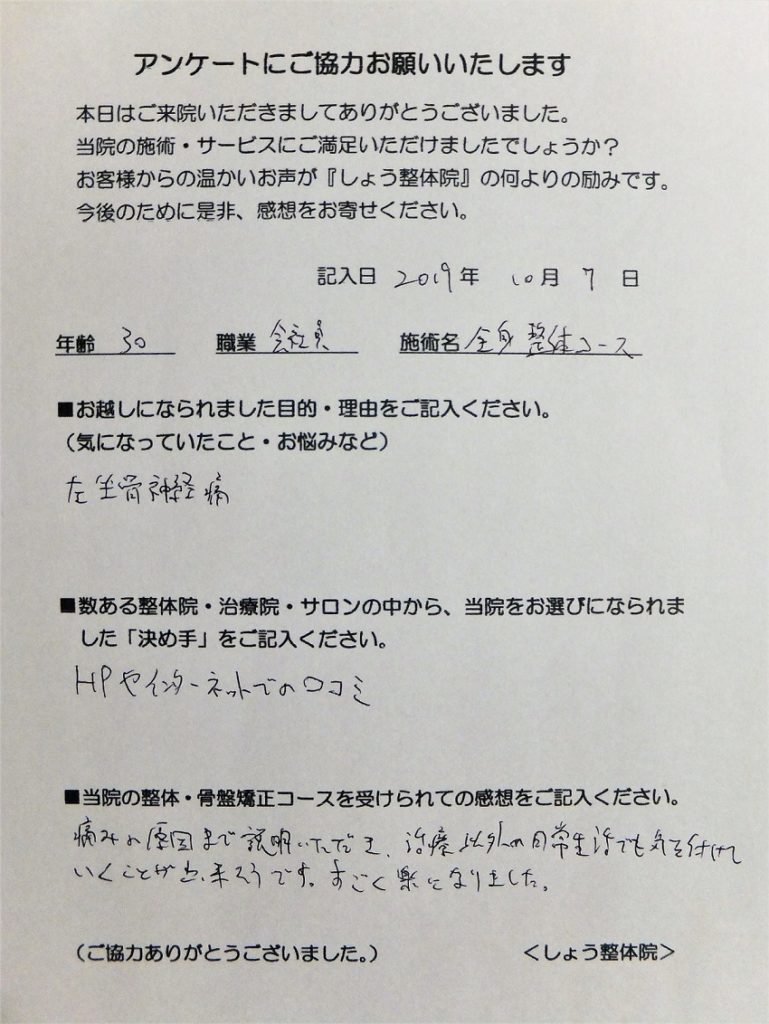 アンケートにご協力お願いいたします
本日はご来院いただきましてありがとうございました。
当院の施術・サービスにご満足いただけましたでしょうか？
お客様からの温かいお声が『しょう整体院』の何よりの励みです。
今後のために是非、感想をお寄せください。
記入日 2019年 10月 7日
年齢 30 職業 会社員 施術名 全身整体コース
■お越しになられました目的・理由をご記入ください。
（気になっていたこと・お悩みなど）
左坐骨神経痛
■数ある整体院・治療院・サロンの中から、当院をお選びになられま
した「決め手」をご記入ください。
HPやインターネットでの口コミ
■当院の整体・骨盤矯正コースを受けられての感想をご記入ください。
痛みの原因まで説明いただき、治療以外の日常生活でも気を付けて
いくことが出来そうです。すごく楽になりました。
（ご協力ありがとうございました。） ＜しょう整体院＞